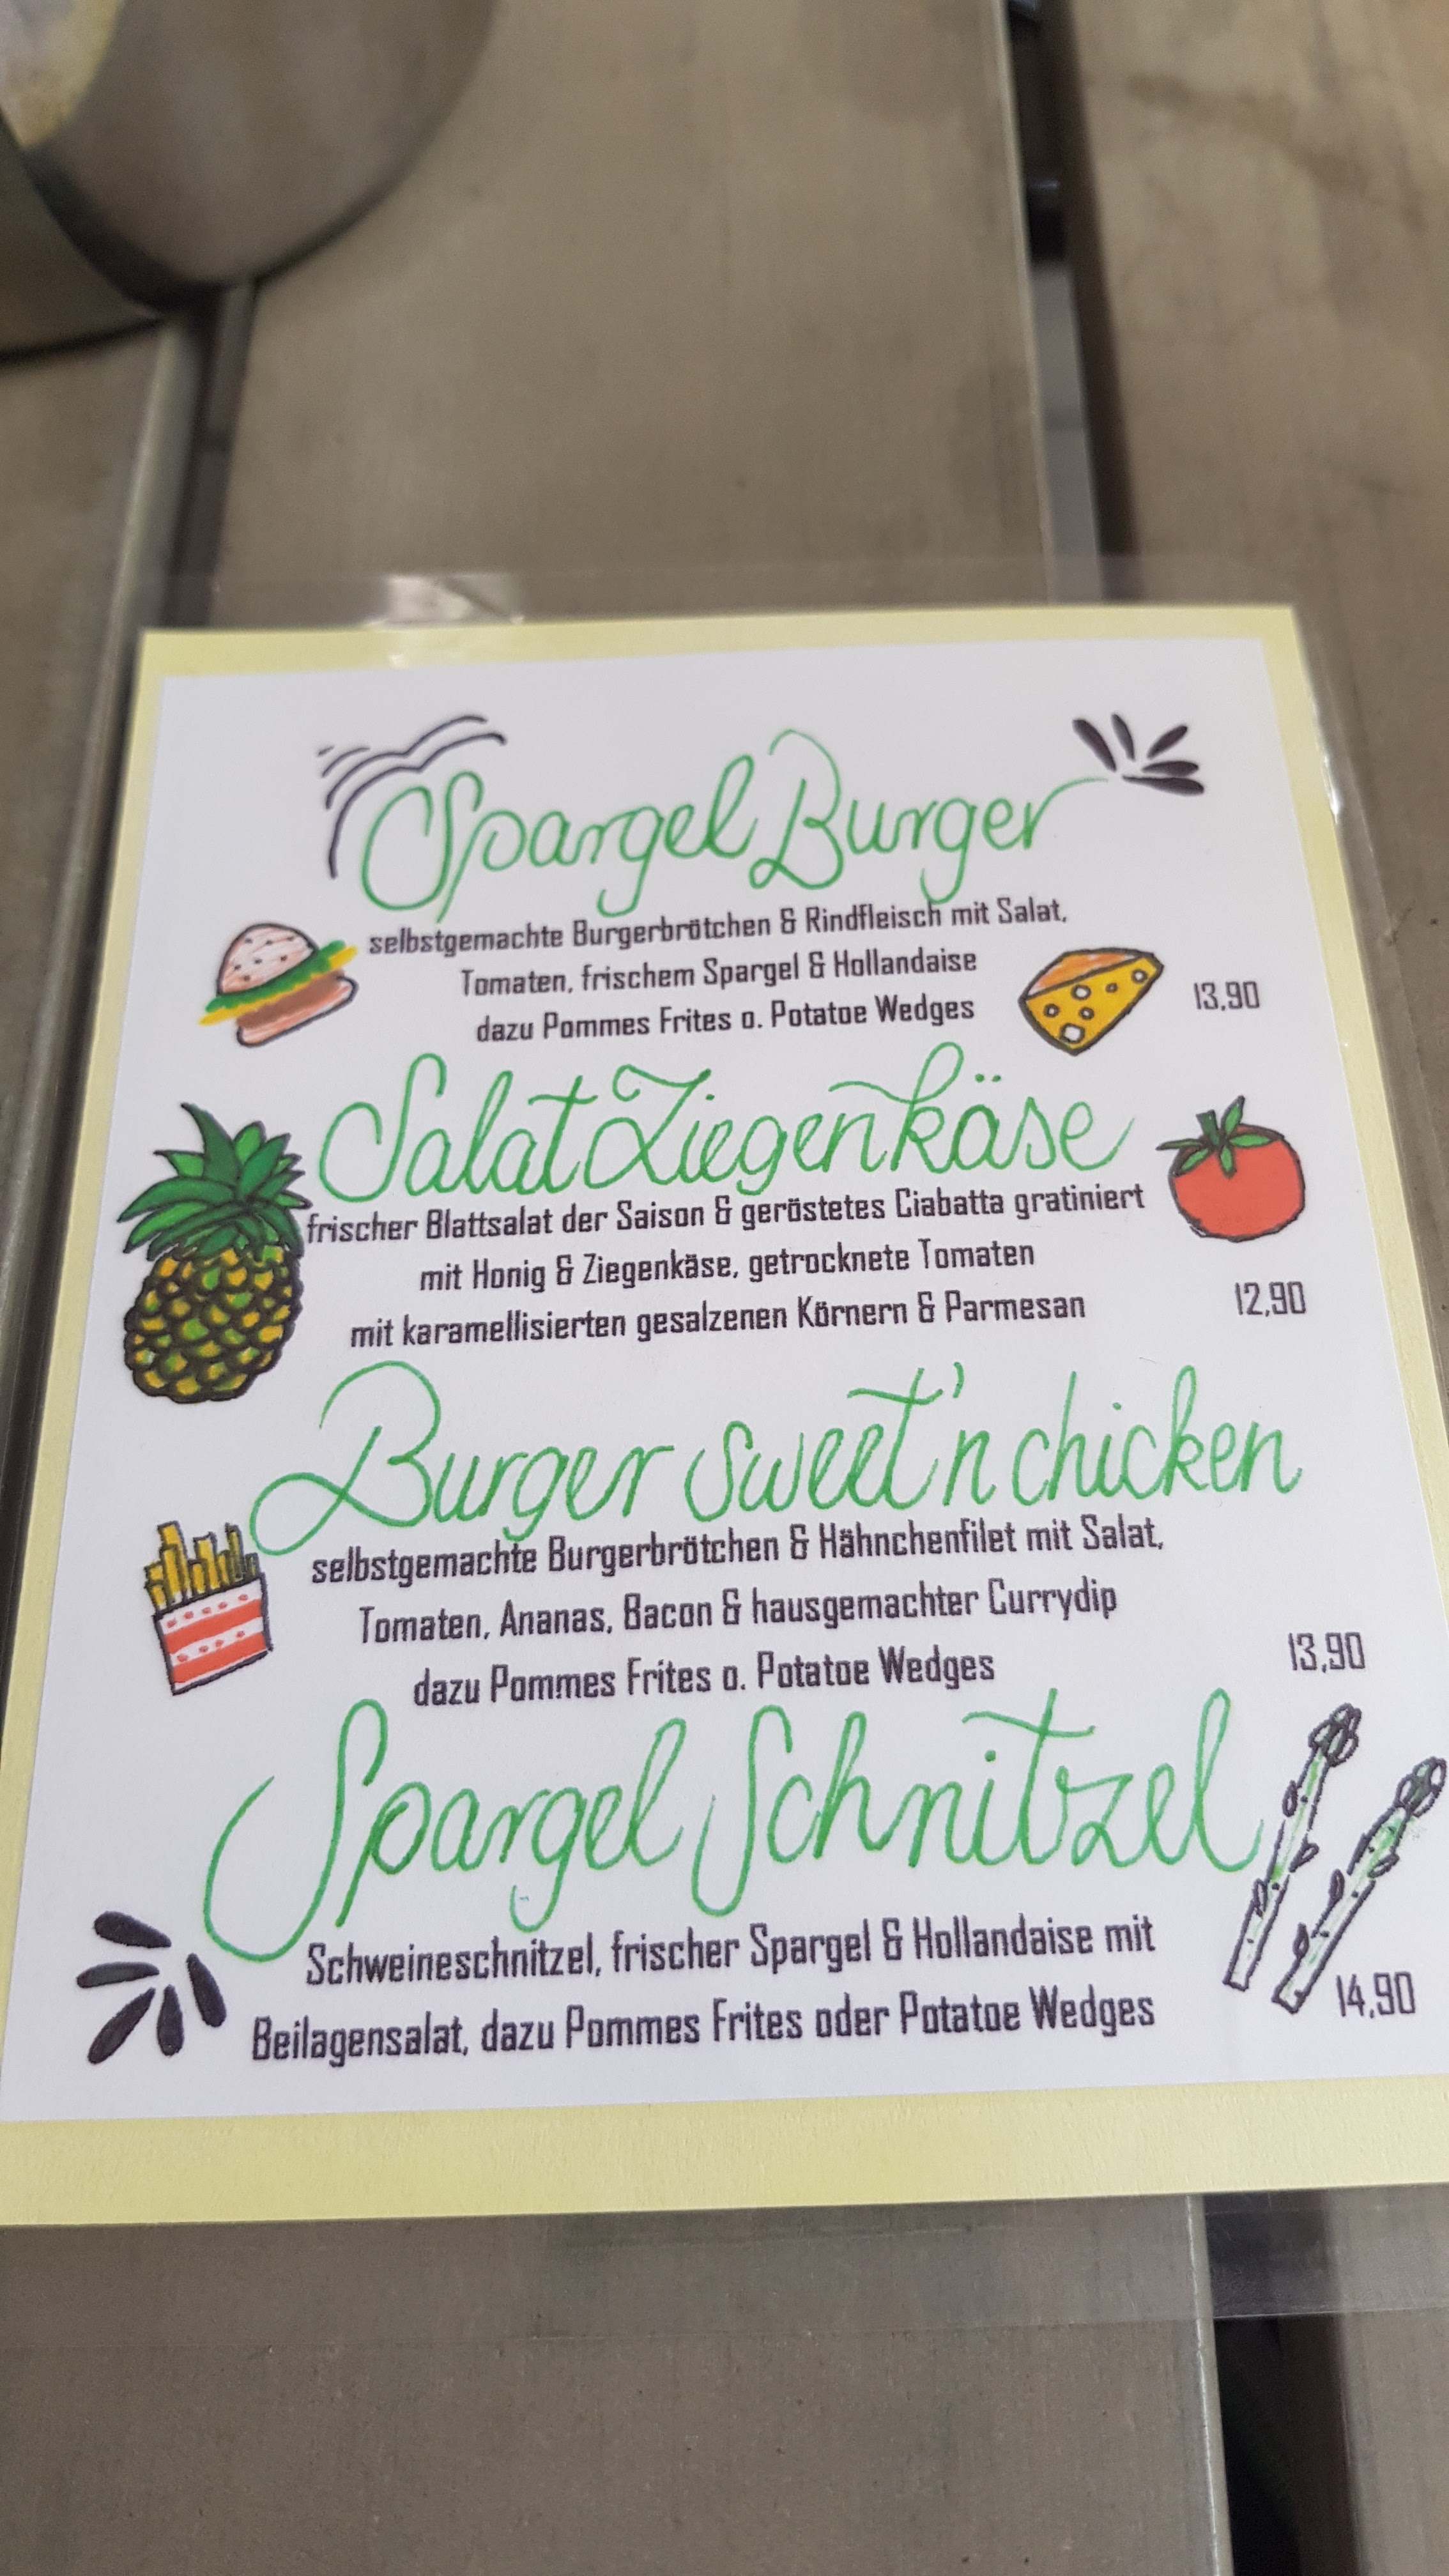 Spargel Burger
selbstgemachte Burgerbrötchen & Rindfleisch mit Salat,
Tomaten, frischem Spargel & Hollandaise
dazu Pommes Frites o. Potatoe Wedges
13,90
Salat Ziegenkäse
frischer Blattsalat der Saison & geröstetes Ciabatta gratiniert
mit Honig & Ziegenkäse, getrocknete Tomaten
mit karamellisierten gesalzenen Körnern & Parmesan
12,90
Burger sweet'n chicken
selbstgemachte Burgerbrötchen & Hähnchenfilet mit Salat,
Tomaten, Ananas, Bacon & hausgemachter Currydip
dazu Pommes Frites o. Potatoe Wedges
13,90
Spargel Schnitzel
Schweineschnitzel, frischer Spargel & Hollandaise mit
Beilagensalat, dazu Pommes Frites oder Potatoe Wedges
14,90